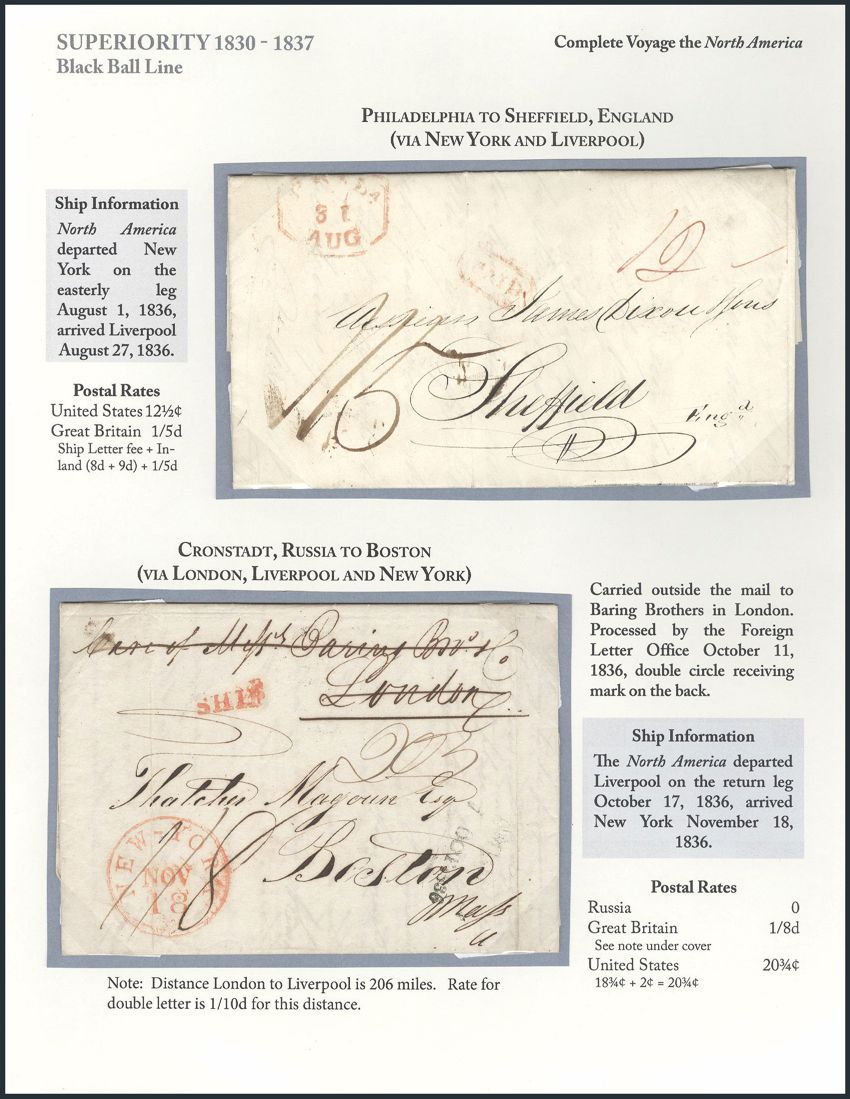 SUPERIORITY 1830 - 1837
Black Ball Line
Complete Voyage the North America
PHILADELPHIA TO SHEFFIELD, ENGLAND
(VIA NEW YORK AND LIVERPOOL)
Ship Information
North America
departed New
York on the
easterly leg
August 1, 1836,
arrived Liverpool
August 27, 1836.
Postal Rates
United States 12½¢
Great Britain 1/5d
Ship Letter fee + In-
land (8d + 9d) + 1/5d
31
AUG
PAID
12
James Dixon & Sons
1/5
Sheffield
Eng.d
CRONSTADT, RUSSIA TO BOSTON
(VIA LONDON, LIVERPOOL AND NEW YORK)
Care of Mess.rs Baring Bro.s & Co
London
SHIP
Thatcher Magoun Esq
Boston
Mass
1/8
NEW-YORK
NOV
18
Carried outside the mail to
Baring Brothers in London.
Processed by the Foreign
Letter Office October 11,
1836, double circle receiving
mark on the back.
Ship Information
The North America departed
Liverpool on the return leg
October 17, 1836, arrived
New York November 18,
1836.
Postal Rates
Russia 0
Great Britain 1/8d
See note under cover
United States 20¾¢
18¾¢ + 2¢ = 20¾¢
Note: Distance London to Liverpool is 206 miles. Rate for
double letter is 1/10d for this distance.